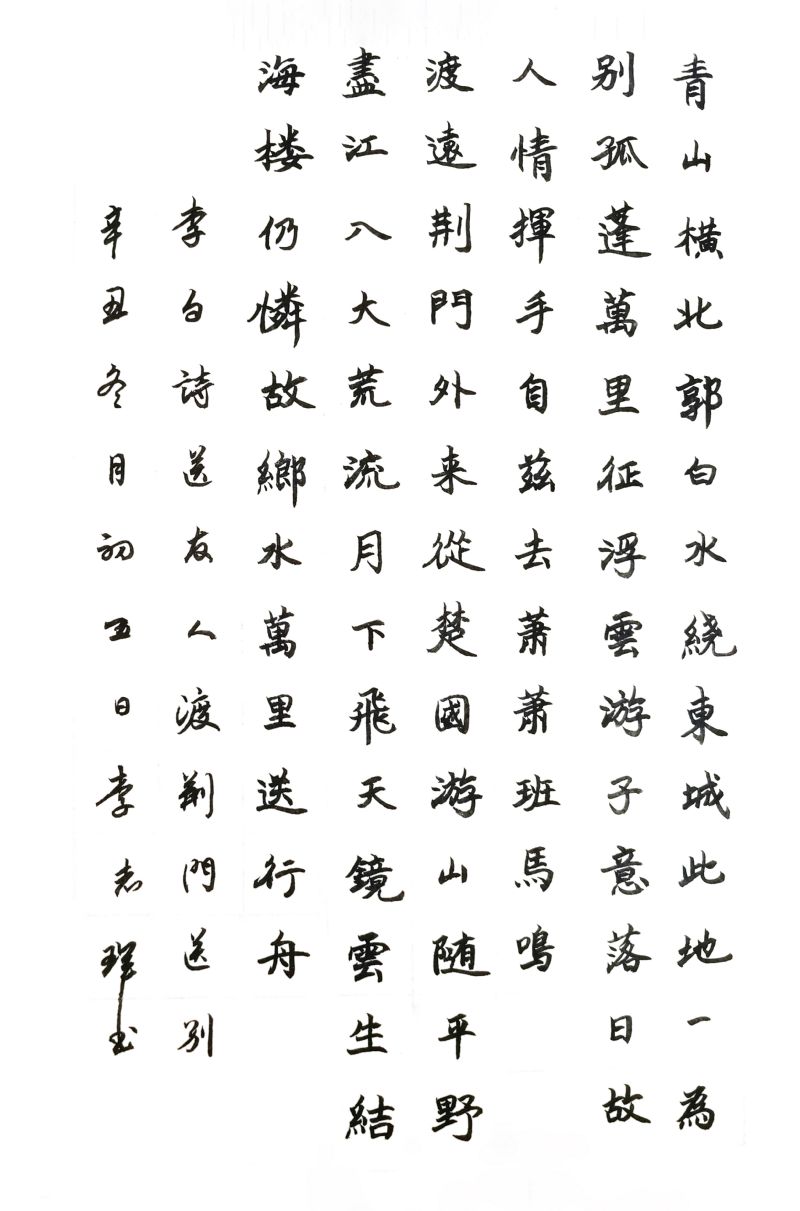 青山橫北郭白水繞東城此地一為
别孤蓬萬里征浮雲游子意落日故
人情揮手自兹去萧萧班馬鳴
渡遠荆門外来從楚國游山随平野
盡江入大荒流月下飛天鏡雲生結
海楼仍憐故鄉水萬里送行舟
李白詩送友人渡荆門送别
辛丑冬月初五日李志瑾书